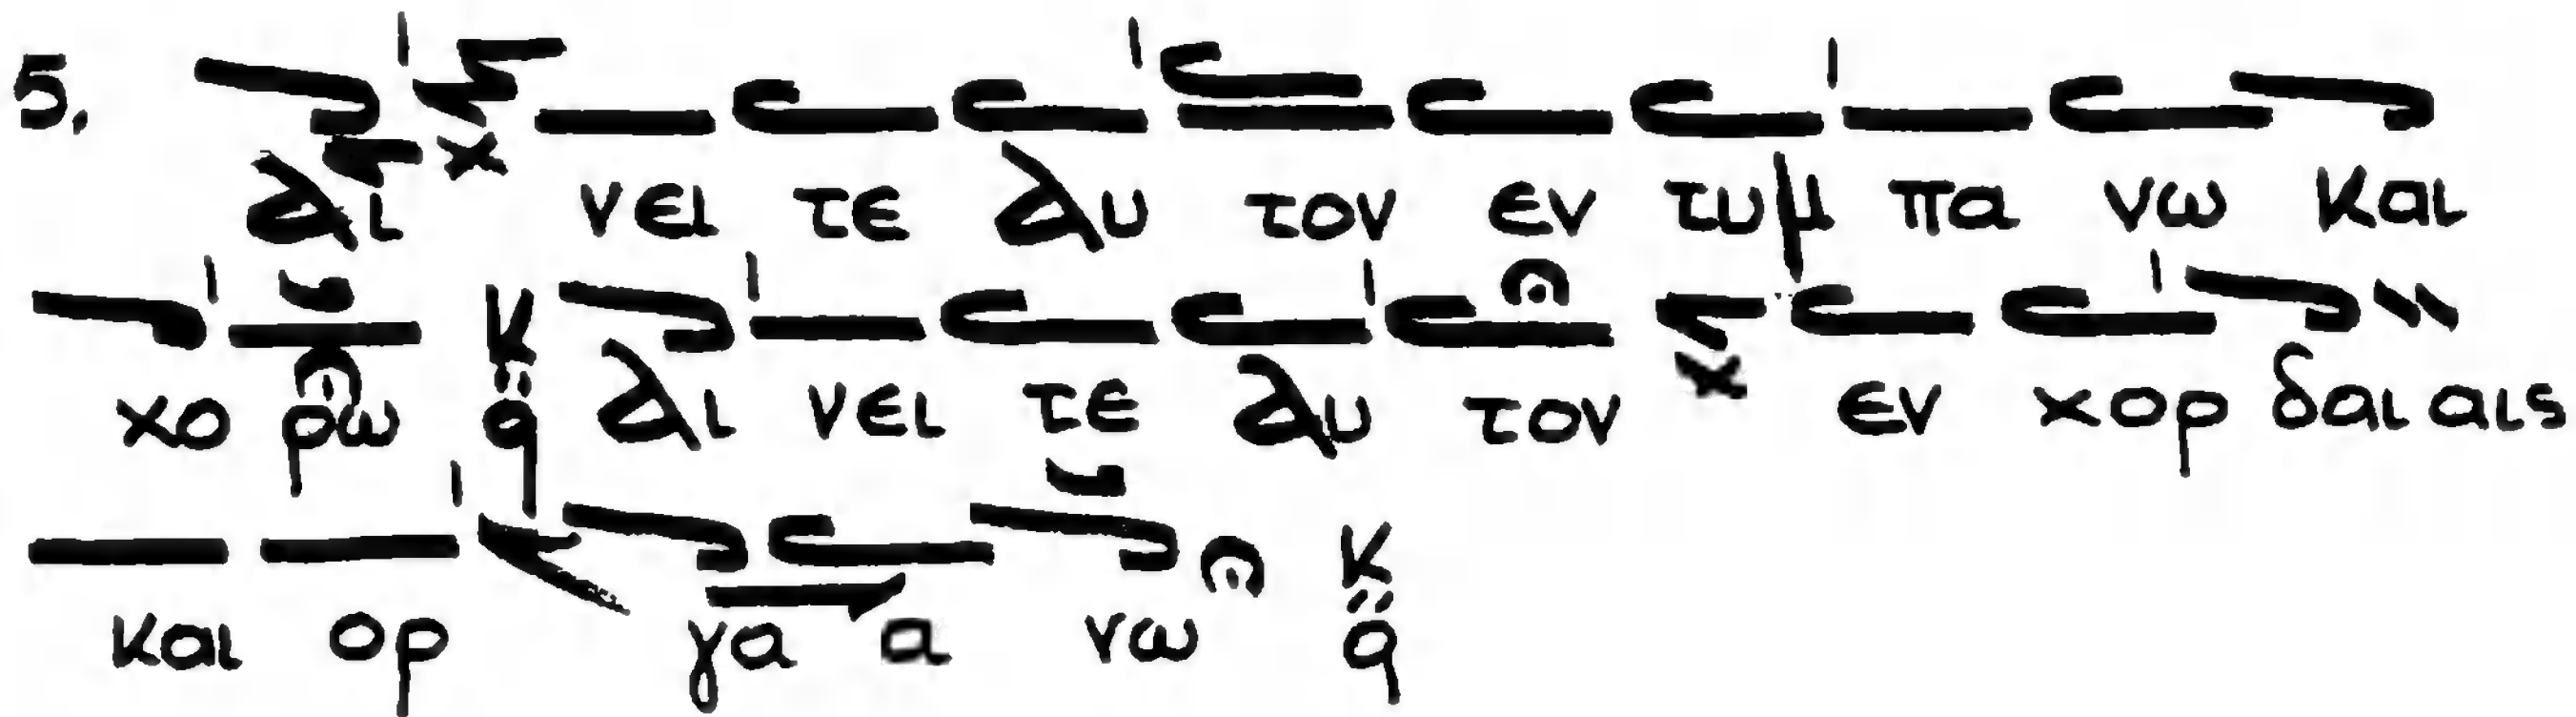 5. αι νει τε αυ τον εν τυμ πα νω και
χο ρω κ q αι νει τε αυ τον εν χορ δαι αις
και ορ γα α νω κ q